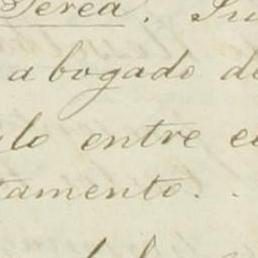 Perea. Su
abogado de
lo entre e
tamento.